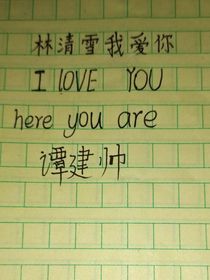 林清雪我爱你
I LOVE YOU
here you are
谭建帅